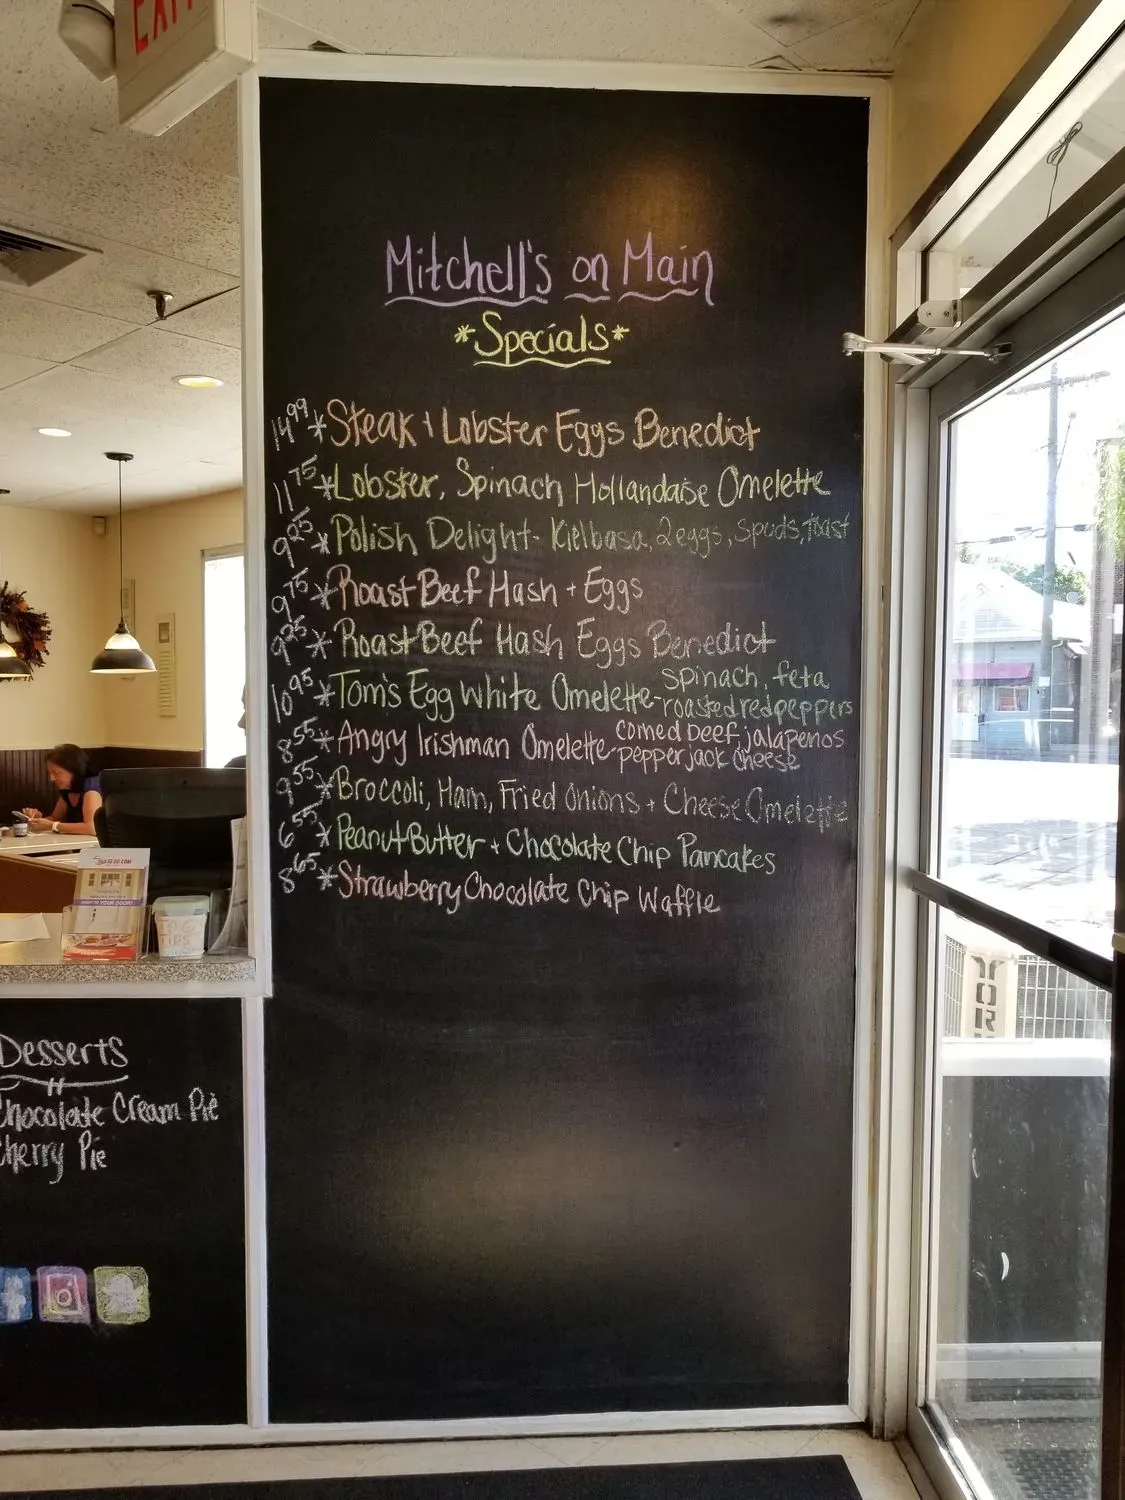 EXIT
Mitchell's on Main
*Specials*
14.99 * Steak + Lobster Eggs Benedict
11.75 * Lobster, Spinach Hollandaise Omelette
9.25 * Polish Delight - Kielbasa, 2 eggs, spuds, toast
9.75 * Roast Beef Hash + Eggs
9.95 * Roast Beef Hash Eggs Benedict
10.95 * Tom's Egg White Omelette - spinach, feta
roasted red peppers
8.55 * Angry Irishman Omelette - corned beef, jalapenos
pepper jack cheese
9.55 * Broccoli, Ham, Fried Onions + Cheese Omelette
6.55 * Peanut Butter + Chocolate Chip Pancakes
8.65 * Strawberry Chocolate Chip Waffle
TIPS
TO YOUR DOOR!
Desserts
Chocolate Cream Pie
Cherry Pie
YOR